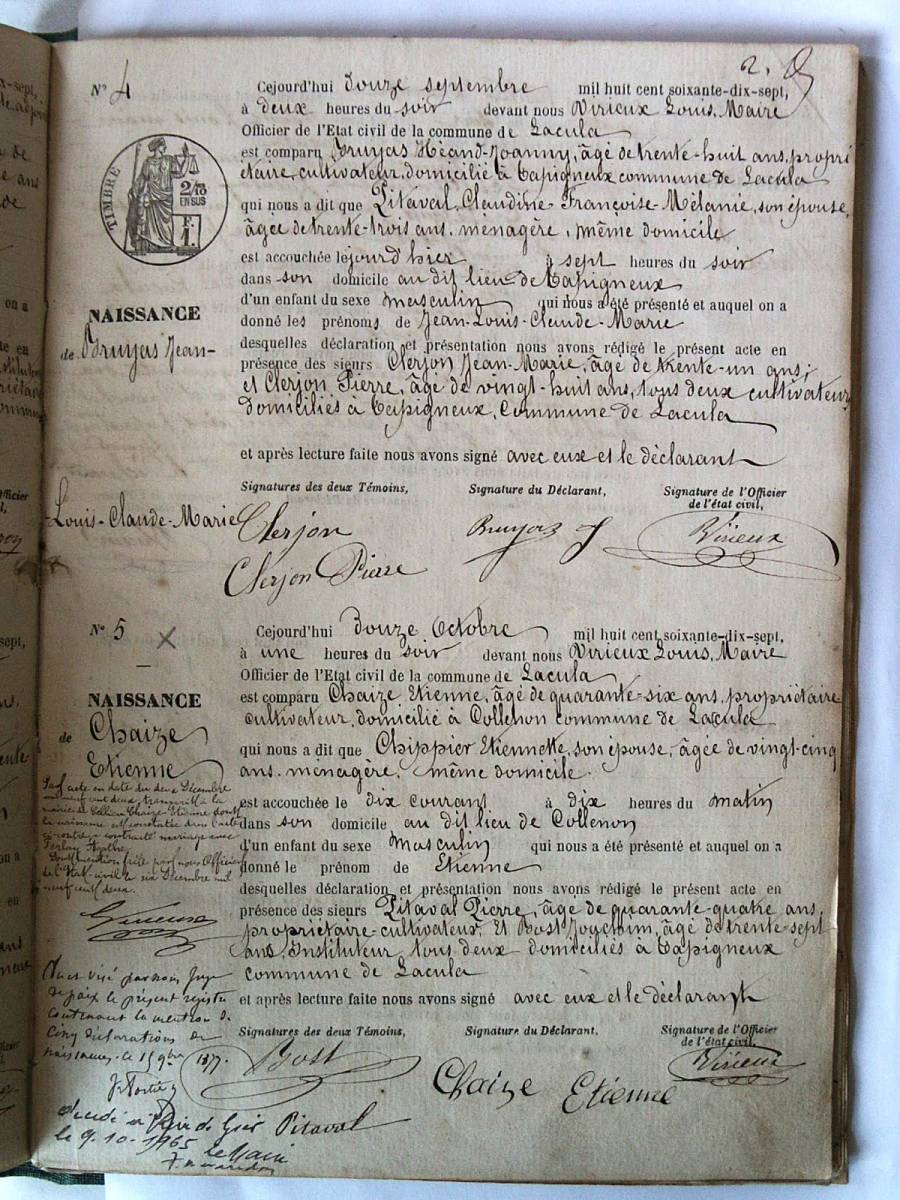 2.
N° 4
Cejourd'hui Douze septembre mil huit cent soixante-dix-sept,
à deux heures du soir devant nous Virieux Louis, Maire
Officier de l'Etat civil de la commune de Lacula
est comparu Bruyas Héand-Joanny, âgé de trente-huit ans, propri
étaire, cultivateur, domicilié à Capigneux commune de Lacula
qui nous a dit que Pitaval, Claudine-Françoise-Mélanie, son épouse,
âgée de trente-trois ans, ménagère, même domicile
est accouchée le jourd'hier à sept heures du soir
dans son domicile au dit lieu de Capigneux
d'un enfant du sexe masculin qui nous a été présenté et auquel on a
donné les prénoms de Jean-Louis-Claude-Marie
desquelles déclaration et présentation nous avons rédigé le présent acte en
présence des sieurs Clerjon Jean-Marie, âgé de trente-un ans,
et Clerjon Pierre, âgé de vingt-huit ans, tous deux cultivateurs
domiciliés à Capigneux, commune de Lacula
et après lecture faite nous avons signé avec eux et le déclarant
TIMBRE
2/10
EN SUS
F.
1.
NAISSANCE
de Bruyas Jean-
Louis-Claude-Marie
Signatures des deux Témoins, Signature du Déclarant, Signature de l'Officier
de l'état civil,
Clerjon Bruyas J Virieux
Clerjon Pierre
N° 5
Cejourd'hui Douze Octobre mil huit cent soixante-dix-sept,
à une heures du soir devant nous Virieux Louis, Maire
Officier de l'Etat civil de la commune de Lacula
est comparu Chaize Etienne, âgé de quarante-six ans, propriétaire
cultivateur, domicilié à Collenon commune de Lacula
qui nous a dit que Chippier Etiennette, son épouse, âgée de vingt-cinq
ans, ménagère, même domicile
est accouchée le dix courant à dix heures du matin
dans son domicile au dit lieu de Collenon
d'un enfant du sexe Masculin qui nous a été présenté et auquel on a
donné le prénom de Etienne
desquelles déclaration et présentation nous avons rédigé le présent acte en
présence des sieurs Pitaval Pierre, âgé de quarante-quatre ans,
propriétaire-cultivateur, et Bost Joachim, âgé de trente-sept
ans, Instituteur tous deux domiciliés à Capigneux
commune de Lacula
et après lecture faite nous avons signé avec eux et le déclarant
NAISSANCE
de Chaize
Etienne
acte en date du deux Décembre
mil neuf cent deux, transcrit à la
mairie de Chaize Etienne dont
la naissance est constatée dans l'acte
ci-contre, a contracté mariage avec
Dont mention faite par nous Officier
de l'Etat-civil le six Décembre mil
neuf cent deux.
Vu et visé par nous, Juge
de paix le présent registre
contenant la mention de
cinq déclarations de
naissances. le 15 9bre 1877.
Signatures des deux Témoins, Signature du Déclarant, Signature de l'Officier
de l'état civil,
Bost Chaize Etienne Virieux
Pitaval
décédé à Rive de Gier
le 9-10-1965
le Maire